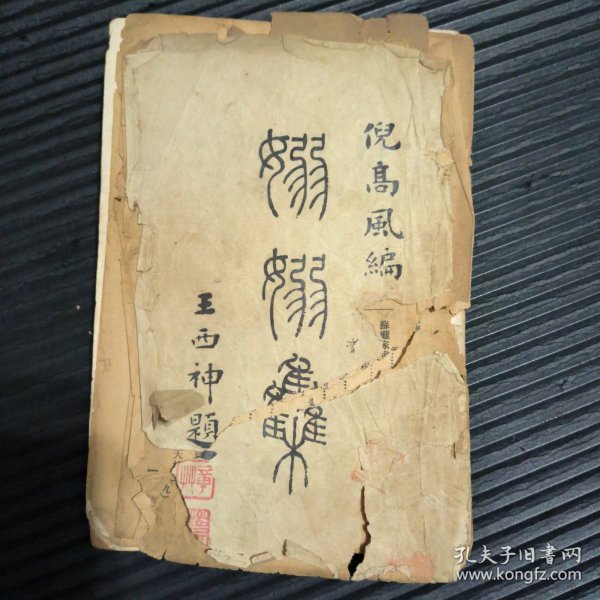 倪高風編
嫋嫋集
王西神題
蘇灘家
孔夫子旧书网
www.kongfz.com